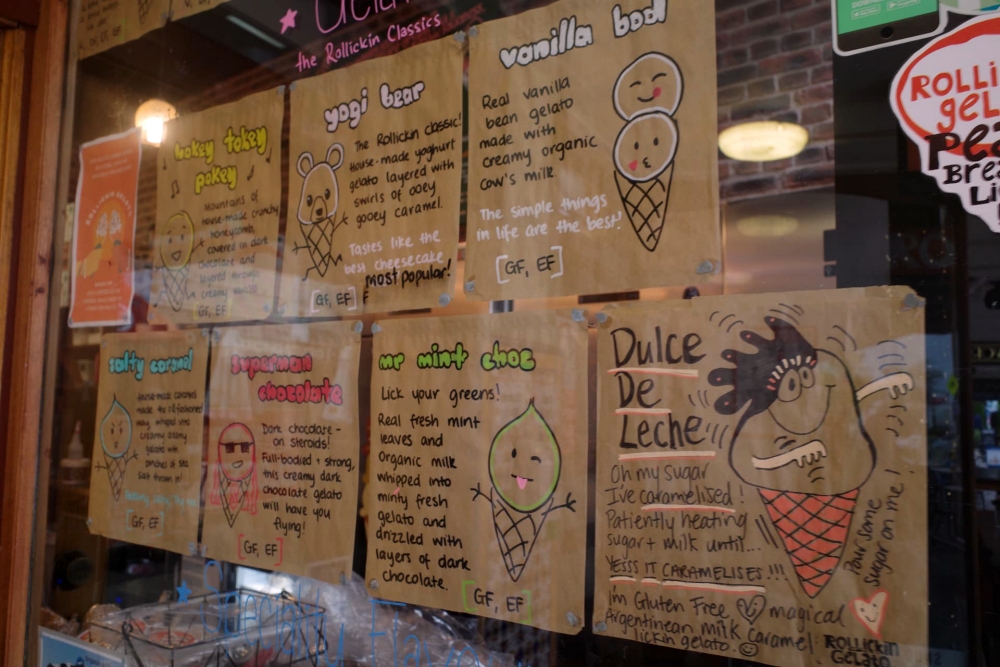 the Rollickin Classics
hokey tokey
pokey
Mountains of
house-made crunchy
honeycomb,
covered in dark
chocolate and
layered through
creamy vanilla
GF, EF
yogi bear
The Rollickin classic!
House-made yoghurt
gelato layered with
swirls of ooey
gooey caramel.
Tastes like the
best cheesecake
most popular!
[GF, EF]
vanilla bod
Real vanilla
bean gelato
made with
creamy organic
cow's milk.
The simple things
in life are the best!
[GF, EF]
salty caramel
House-made caramel
made the old fashioned
way, whipped into
creamy dreamy
gelato with
pinches of sea
salt thrown in!
[GF, EF]
superman
chocolate
Dark chocolate -
on steroids!
Full-bodied + strong,
this creamy dark
chocolate gelato
will have you
flying!
[GF, EF]
mr mint choc
Lick your greens!
Real fresh mint
leaves and
organic milk
whipped into
minty fresh
gelato and
drizzled with
layers of dark
chocolate.
[GF, EF]
Dulce
De
Leche
Oh my sugar
I've caramelised!
Patiently heating
sugar + milk until...
YESSS IT CARAMELISES!!!
I'm Gluten Free magical
Argentinean milk caramel
lickin gelato.
Pour some
sugar on me!
ROLLICKIN
GELATO